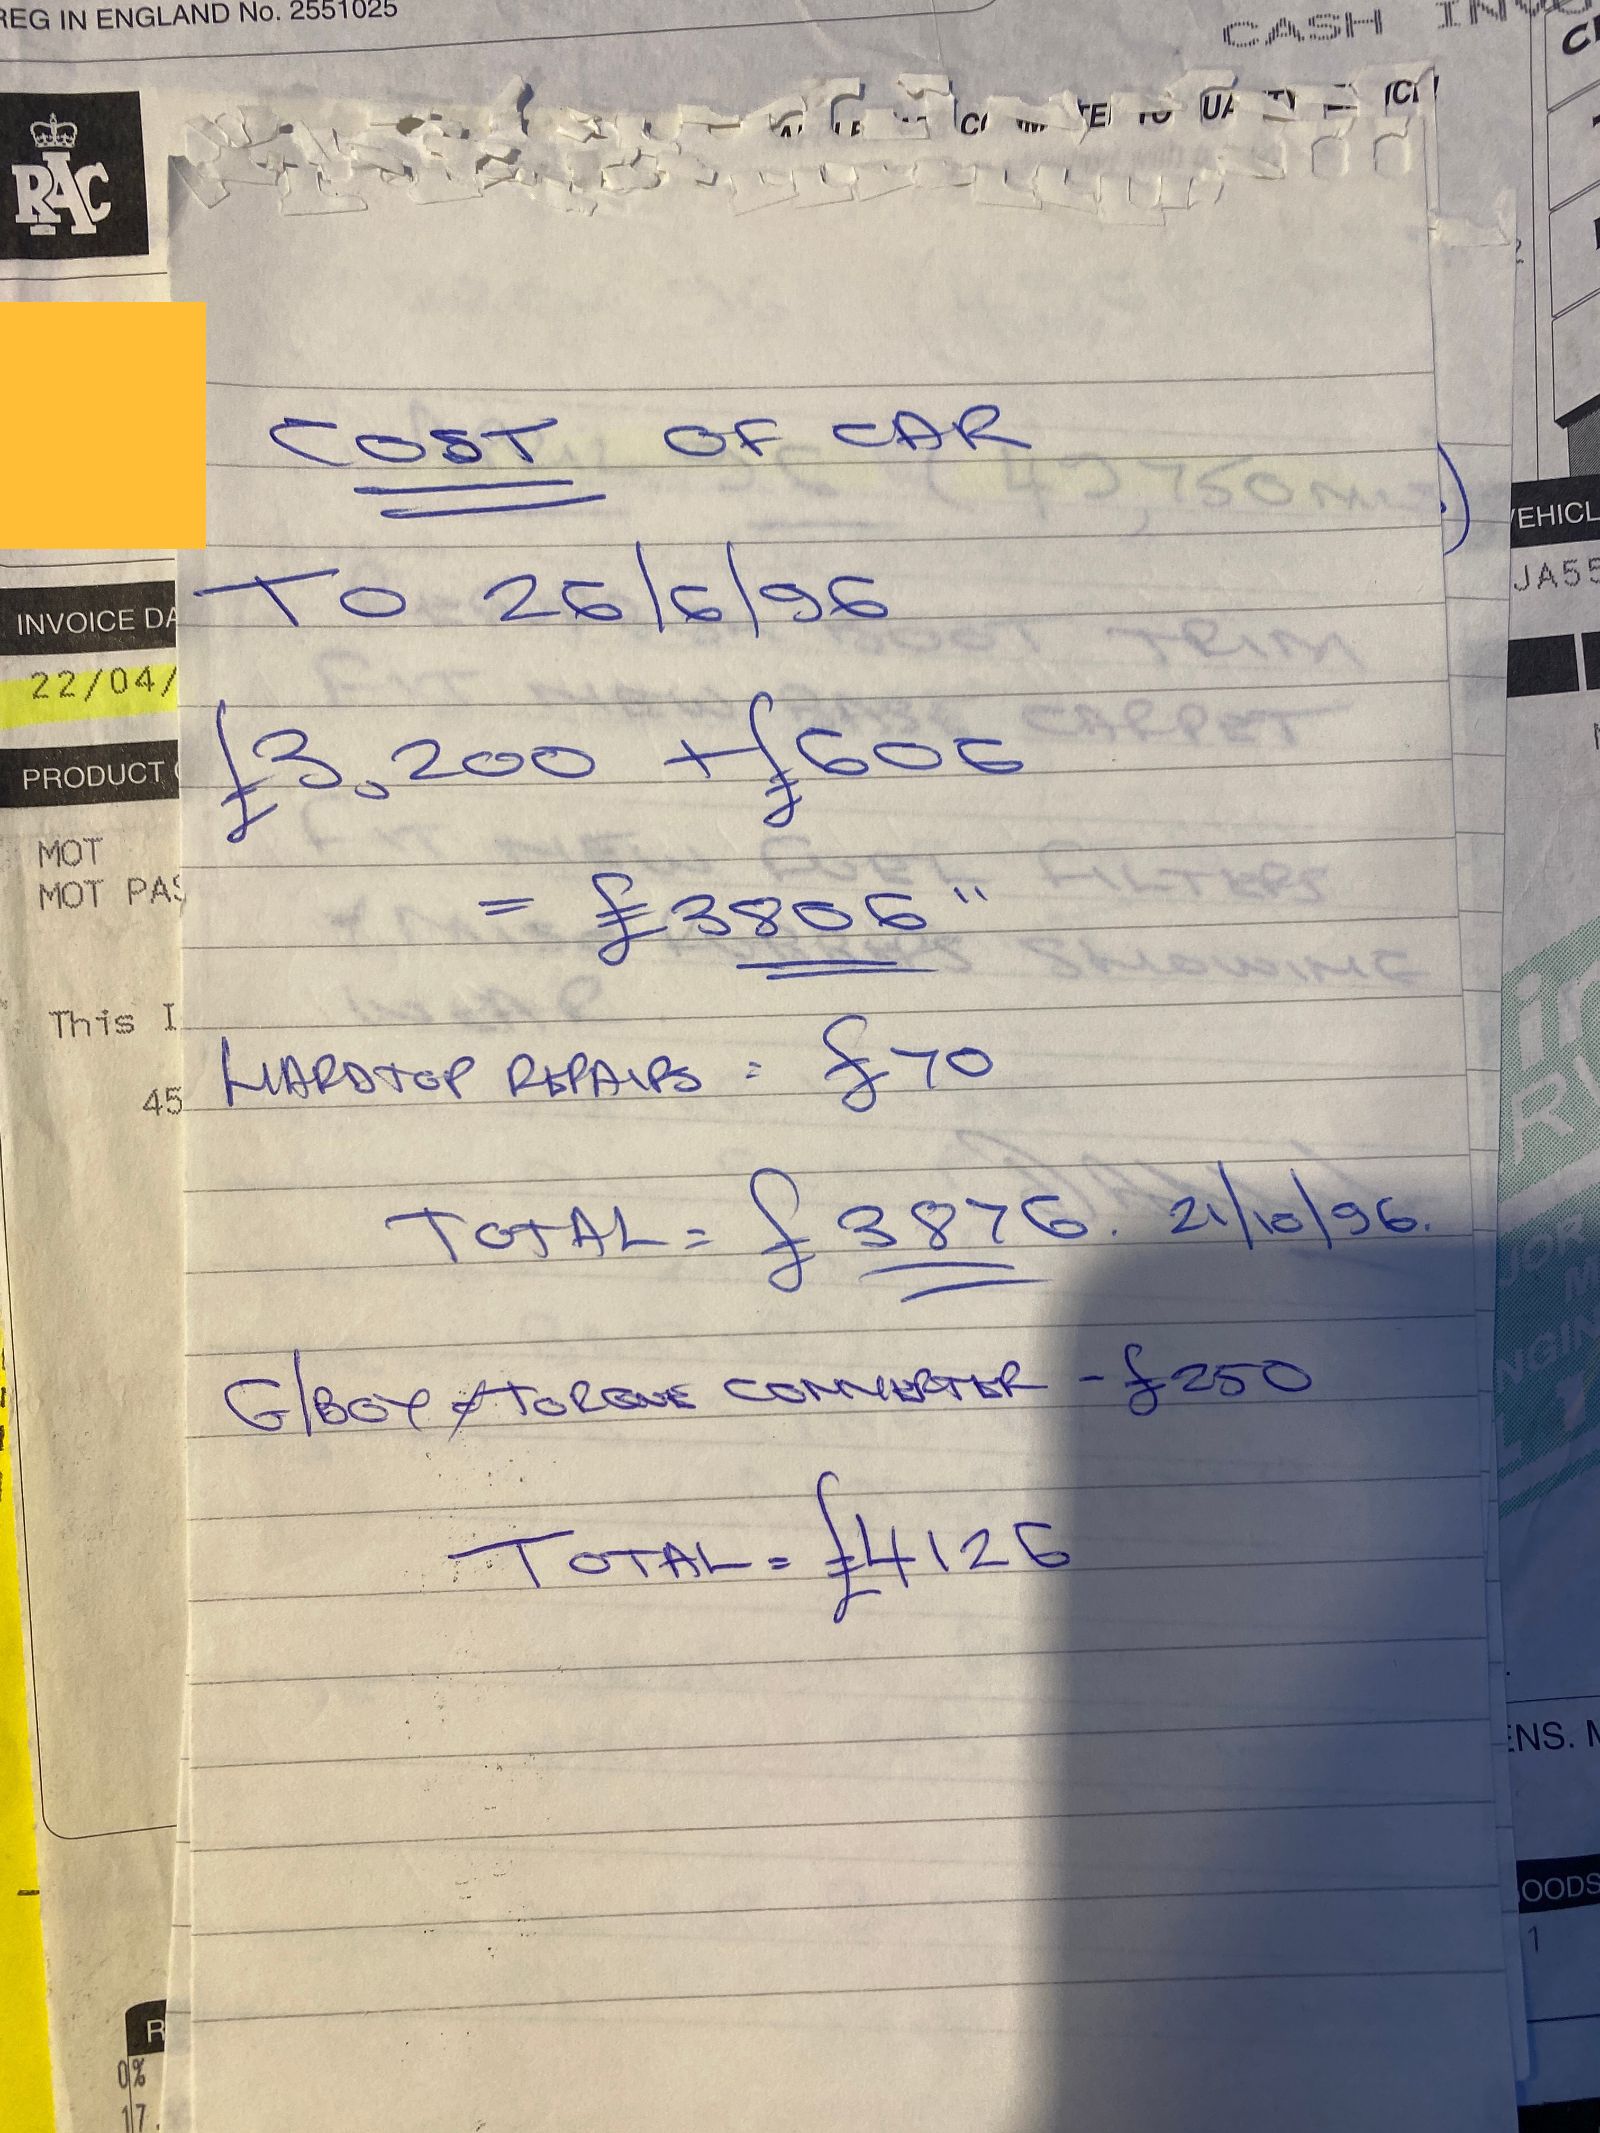 REG IN ENGLAND No. 2551025
CASH
RAC
COST OF CAR
TO 26/6/96
£3,200 + £606
= £3806"
HARDTOP REPAIRS = £70
TOTAL = £3876. 21/10/96.
G/BOX & TORQUE CONVERTER - £250
TOTAL = £4126
INVOICE DA
22/04/
PRODUCT
MOT
MOT PAS
This I
45
R
0%
17.
VEHICL
JA55
ENS.
OODS
1